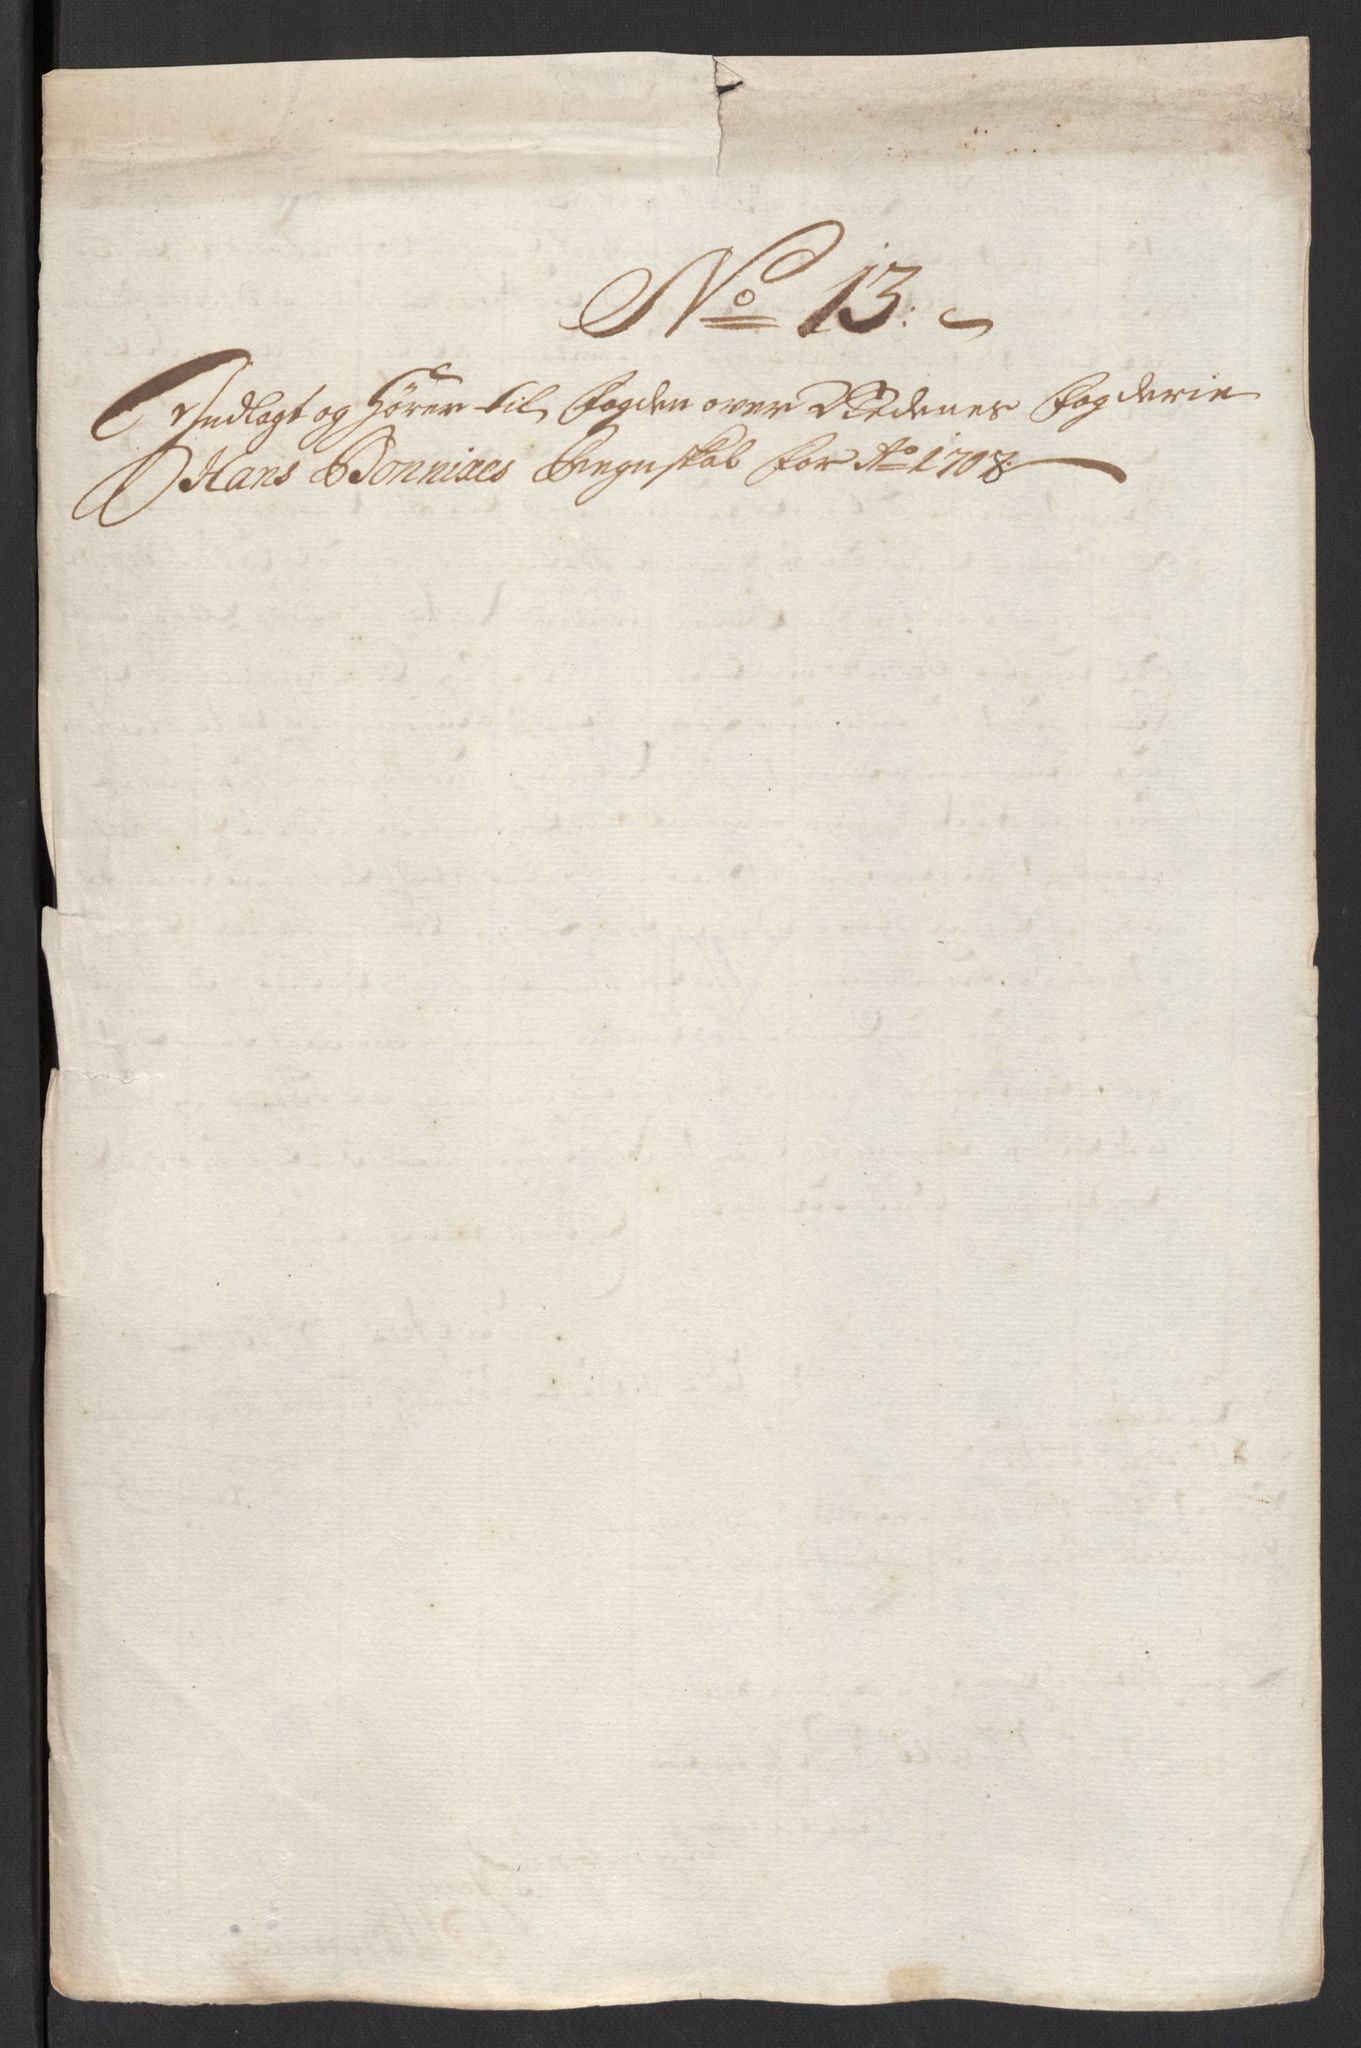 No 13.
Indlagt og Hører til Fogden over Nedenes Fogderie
Hans Bonnixes Regnskab for Ao 1708.